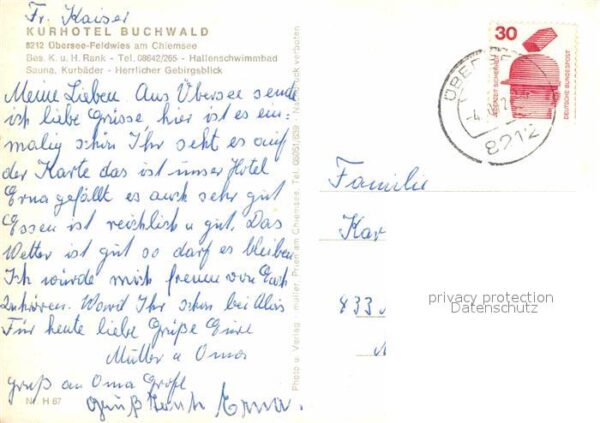 Fr. Kaiser
KURHOTEL BUCHWALD
8212 Übersee-Feldwies am Chiemsee
Bes. K. u. H. Rank - Tel. 08642/265 - Hallenschwimmbad
Sauna, Kurbäder - Herrlicher Gebirgsblick
Meine Lieben Aus Übersee sende
ich liebe Grüsse hier ist es ein-
malig schön Ihr seht es auf
der Karte das ist unser Hotel
Erna gefällt es auch sehr gut
Essen ist reichlich u gut. Das
Wetter ist gut so darf es bleiben
Ich würde mich freuen von Euch
zuhören. Ward Ihr schon bei Alois
Für heute liebe Grüße Eure
Mutter u Oma
Gruß an Oma Groß
Gruß Tante Erna.
Nr. H 67
Photo u. Verlag Prien am Chiemsee, Tel. 08051/ Nachdruck verboten
30
JEDERZEIT SICHERHEIT
DEUTSCHE BUNDESPOST
ÜBERSEE
8212
Familie
Kar
833
privacy protection
Datenschutz